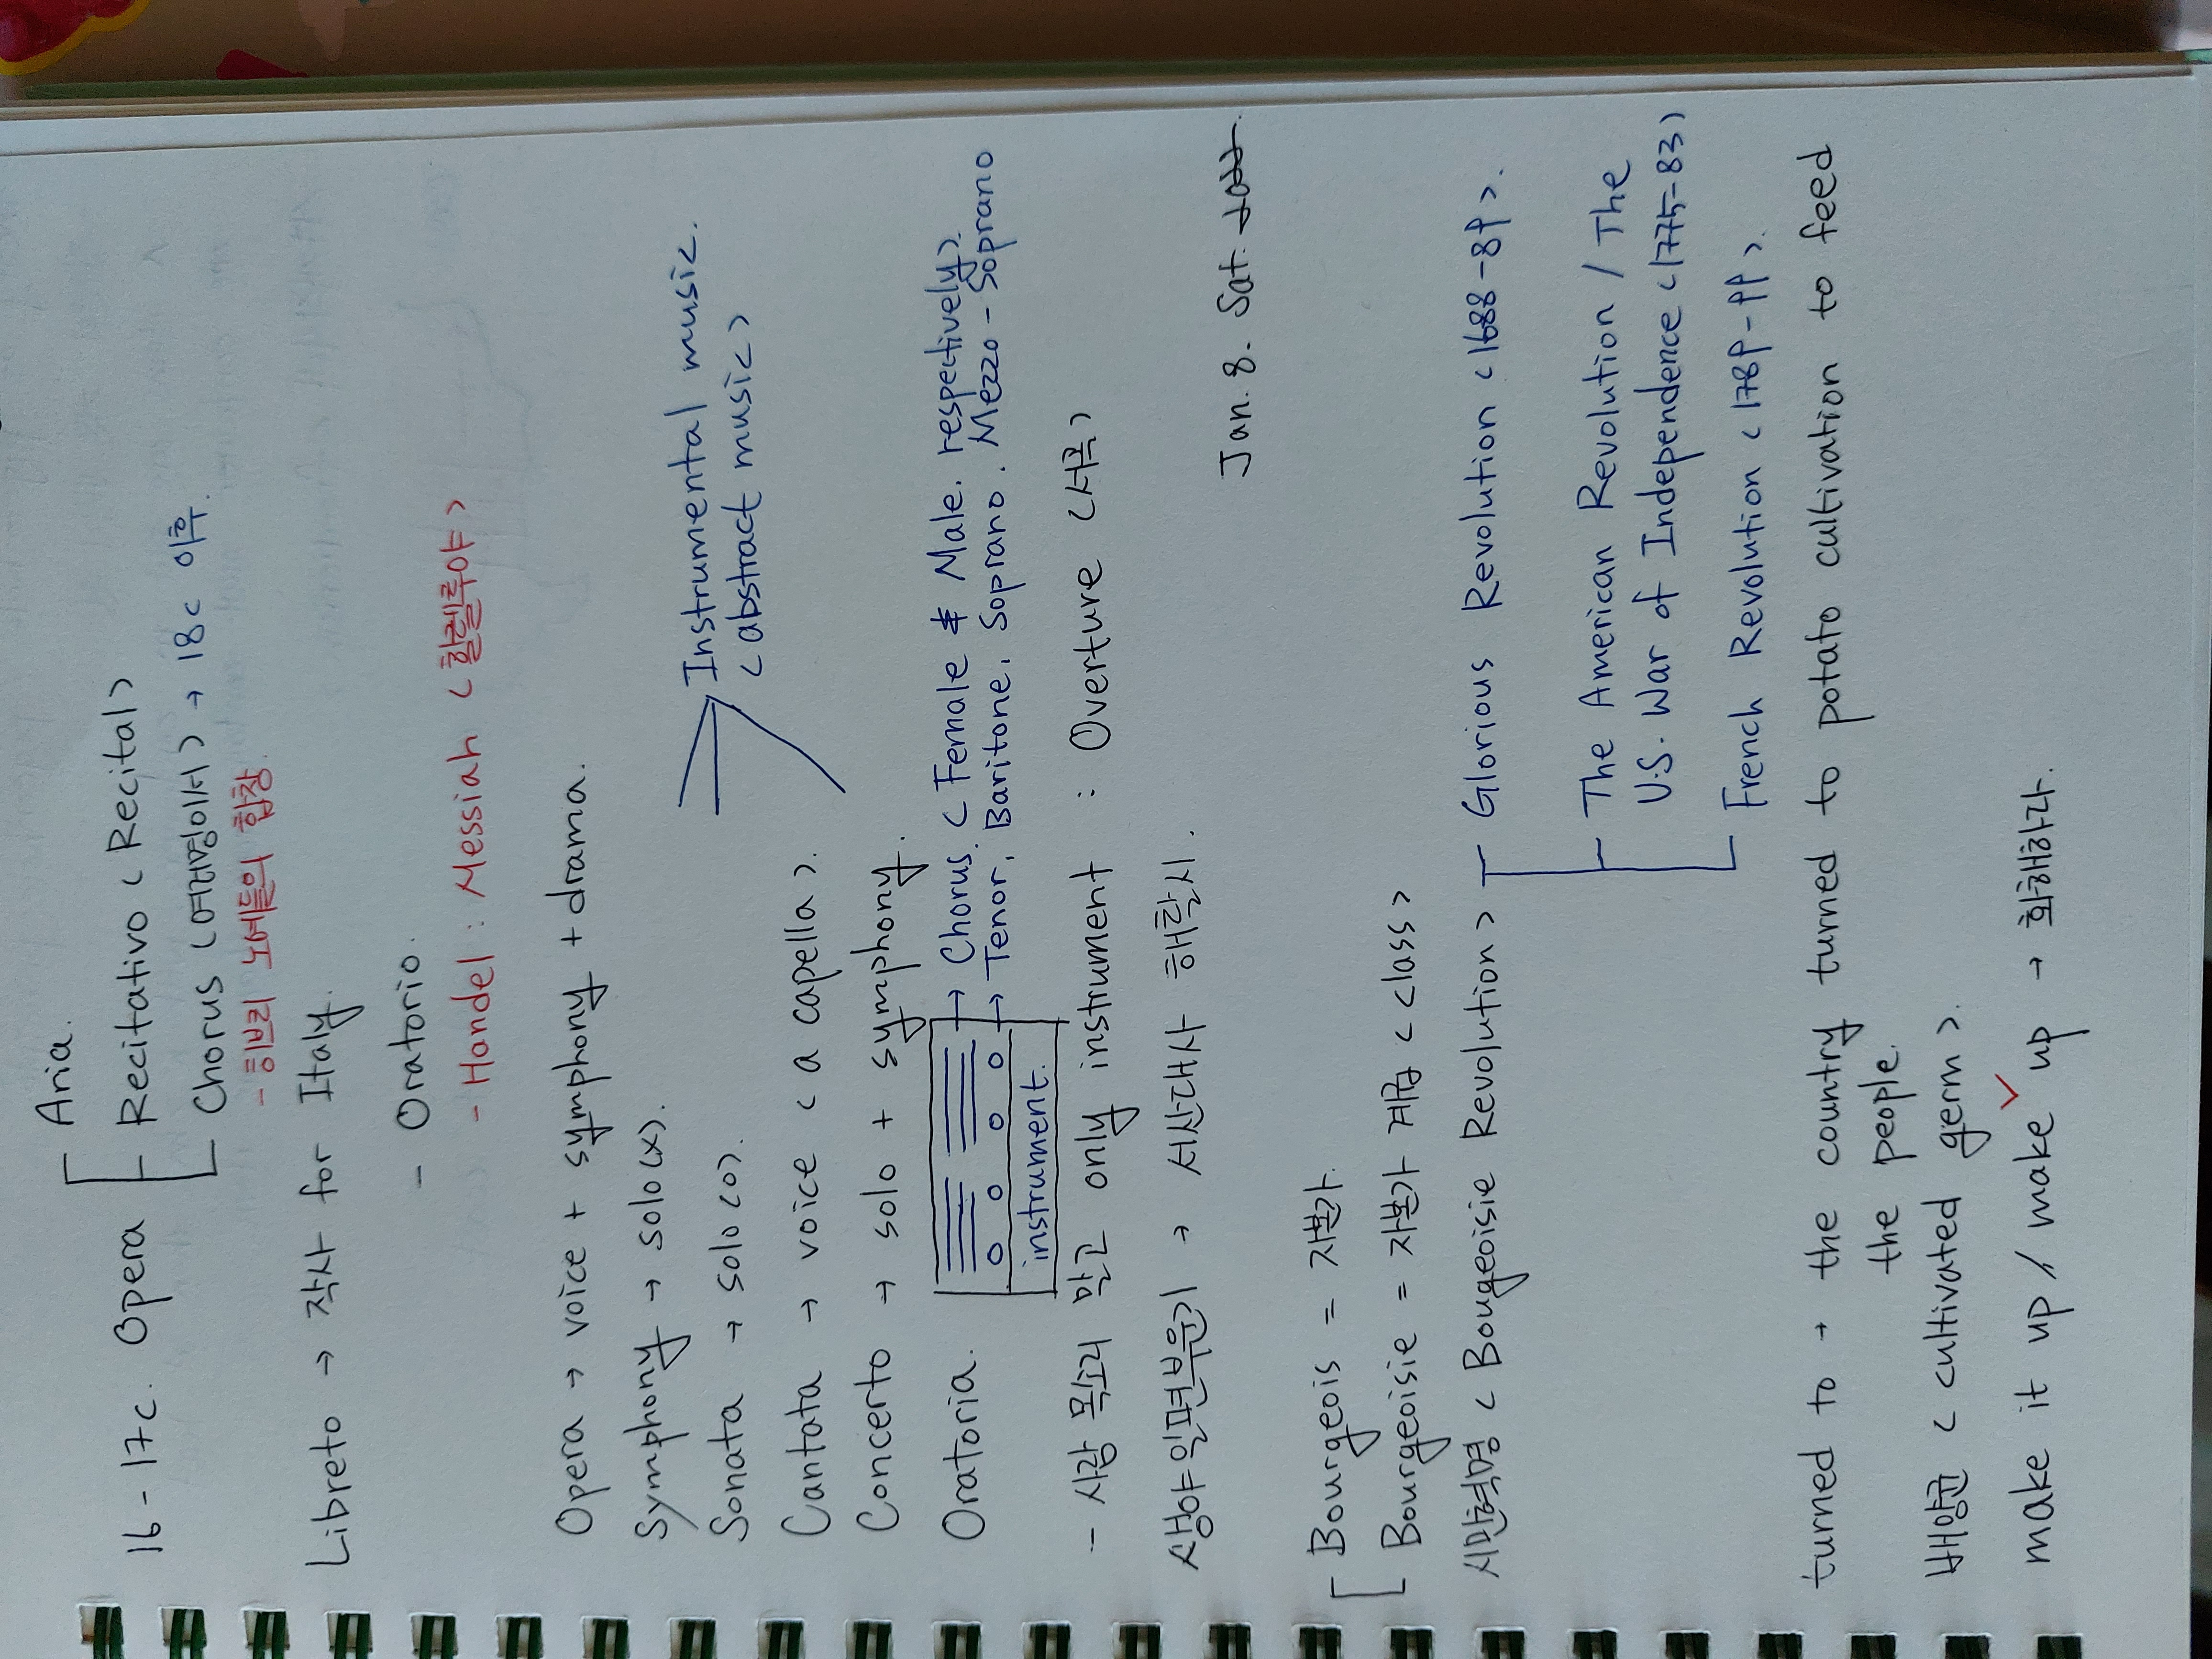 Aria.
16-17c. Opera Recitativo <Recital>
Chorus <여러명이서> → 18c 이후.
- 히브리 노예들의 합창.
Libreto → 작사 for Italy.
- Oratorio.
- Handel : Messiah <할렐루야>
Opera → voice + symphony + drama.
Symphony → solo(x).
Instrumental music.
Sonata → solo(o).
<abstract music>
Cantata → voice <a capella>.
Concerto → solo + symphony.
Oratoria.
→ Chorus. <Female & Male. respectively>
→ Tenor, Baritone, Soprano, Mezzo-Soprano
instrument.
- 사람 목소리 말고 only instrument : Overture <서곡>
→ 서산대사 해탈시.
Jan. 8. Sat.
Bourgeois = 자본가.
Bourgeoisie = 자본가 계급 <class>
시민혁명 <Bougeoisie Revolution>
Glorious Revolution <1688-89>.
The American Revolution / The
U.S. War of Independence <1775-83>
French Revolution <1789-99>.
turned to → the country turned to potato cultivation to feed
the people.
배양균 <cultivated germ>.
make it up / make up → 화해하다.